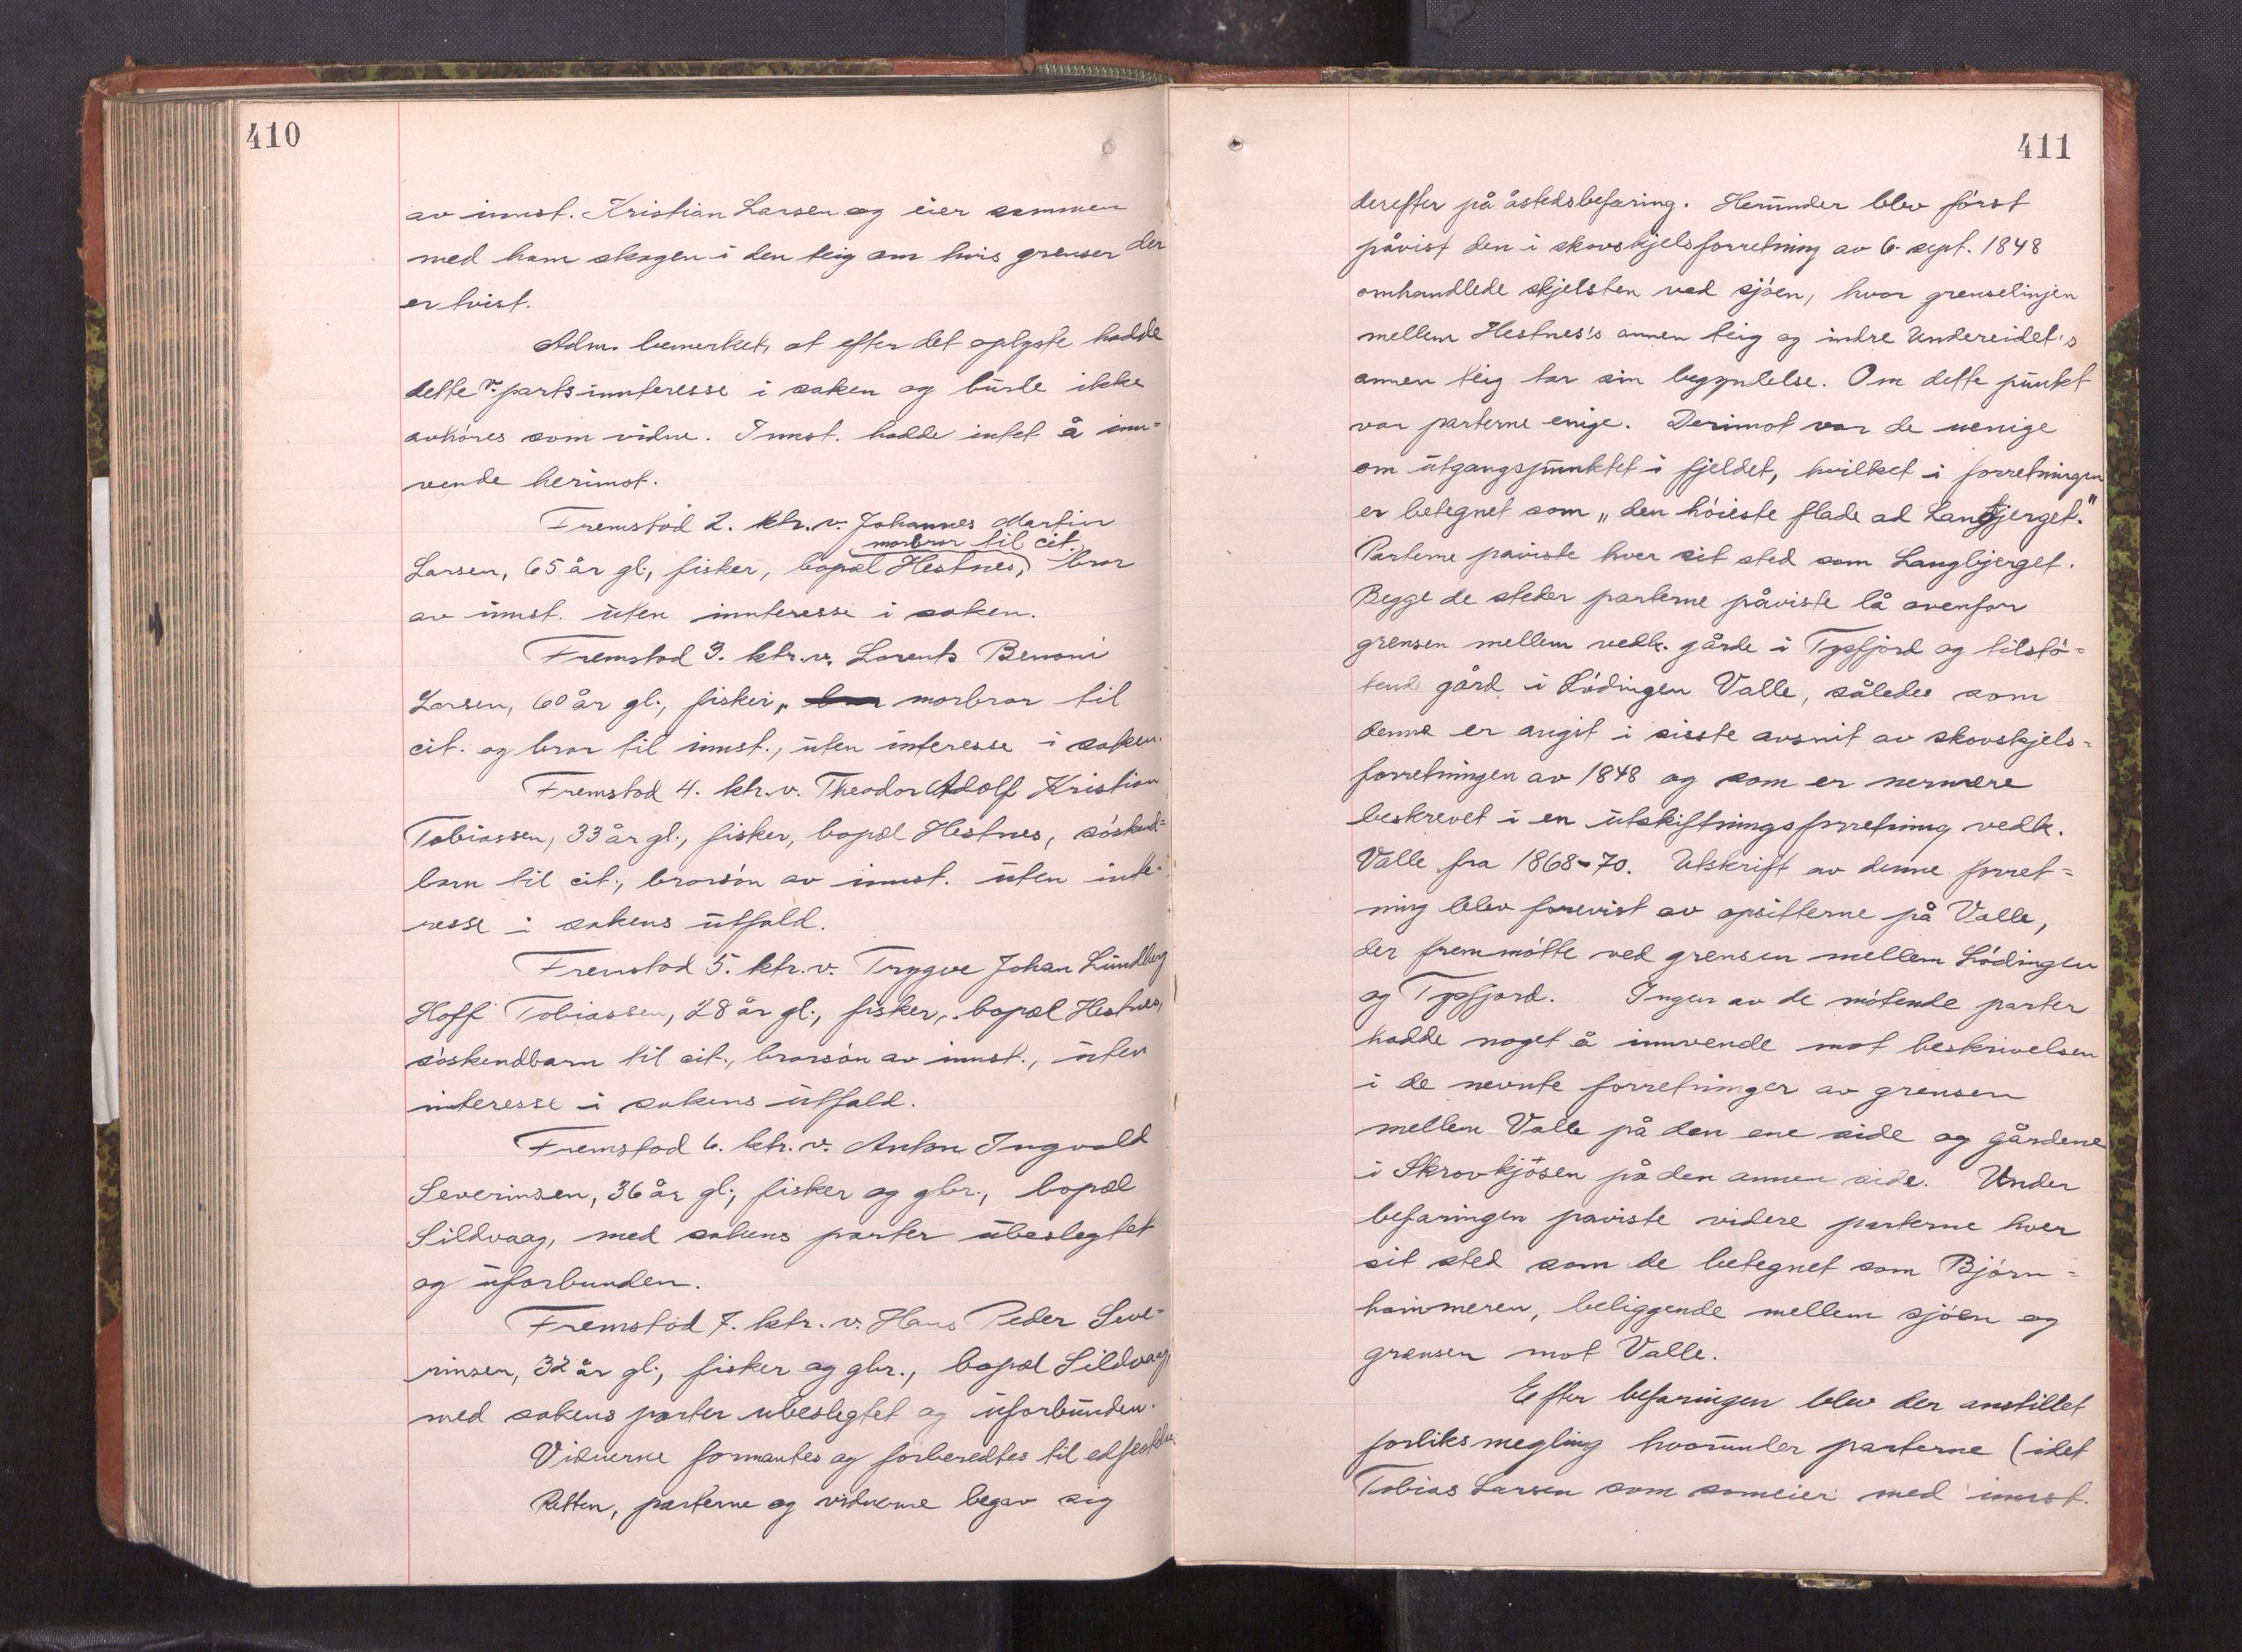 410
av innst. Kristian Larsen og eier sammen
med ham skogen i den teig om hvis grenser der
er tvist.
Adm. bemerket, at efter det oplyste hadde
dette v. partsinnteresse i saken og burde ikke
avhöres som vidne. Innst. hadde intet å inn=
vende herimot.
Fremstod 2. ktr. v. Johannes Martin
morbror til cit.
Larsen, 65 år gl., fisker, bopæl Hestnes, bror
av innst. uten innteresse i saken.
Fremstod 3. ktr. v. Lorents Benoni
Larsen, 60 år gl., fisker, morbror til
cit. og bror til innst., uten interesse i saken.
Fremstod 4. ktr. v. Theodor Adolf Kristian
Tobiassen, 33 år gl., fisker, bopæl Hestnes, söskend=
barn til cit., brorsön av innst. uten inte=
resse i sakens utfald.
Fremstod 5. ktr. v. Trygve Johan Lundberg
Hoff Tobiassen, 28 år gl., fisker, bopæl Hestnes,
söskendbarn til cit., brorsön av innst., uten
interesse i sakens utfald.
Fremstod 6. ktr. v. Anton Ingvald
Severinsen, 36 år gl., fisker og gbr., bopæl
Sildvaag, med sakens parter ubeslegtet
og uforbunden.
Fremstod 7. ktr. v. Hans Peder Seve=
rinsen, 32 år gl., fisker og gbr., bopæl Sildvaag,
med sakens parter ubeslegtet og uforbunden.
Vidnerne formantes og forberedtes til edfestelse
Retten, parterne og vidnerne begav sig
411
derefter på åstedsbefaring. Herunder blev först
påvist den i skovskjelsforretning av 6. sept. 1848
omhandlede skjelsten ved sjöen, hvor grenselinjen
mellem Hestnes's annen teig og indre Undereidet's
annen teig tar sin begyndelse. Om dette punkt
var parterne enige. Derimot var de uenige
om utgangspunktet i fjeldet, hvilket i forretningen
er betegnet som „den höieste flade ad Langbjerget."
Parterne påviste hver sit sted som Langbjerget.
Begge de steder parterne påviste lå ovenfor
grensen mellem vedk. gårde i Tysfjord og tilstö=
tende gård i Lödingen Valle, således som
denne er angit i sisste avsnit av skovskjels=
forretningen av 1848 og som er nermere
beskrevet i en utskiftningsforretning vedk.
Valle fra 1868-70. Utskrift av denne forret=
ning blev forevist av opsitterne på Valle,
der fremmötte ved grensen mellem Lödingen
og Tysfjord. Ingen av de mötende parter
hadde noget å innvende mot beskrivelsen
i de nevnte forretninger av grensen
mellem Valle på den ene side og gårdene
i Skrovkjösen på den annen side. Under
befaringen paviste videre parterne hver
sit sted som de betegnet som Björn=
hammeren, beliggende mellem sjöen og
grensen mot Valle.
Efter befaringen blev der anstillet
forliksmegling hvorunder parterne (idet
Tobias Larsen som sameier med innst.